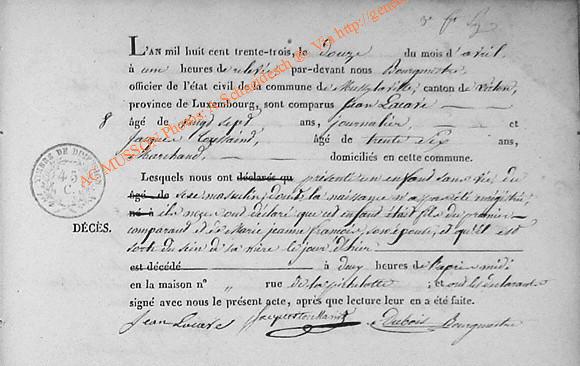 L'AN mil huit cent trente-trois, le Douze du mois d'avril
à une heures de relevée par-devant nous Bourgmestre
officier de l'état civil de la commune de Mussy la ville, canton de Virton,
province de Luxembourg, sont comparus Jean Lucave
8 âgé de vingt sept ans, journalier, et
Jacques Toussaint, âgé de trente Six ans,
Marchand, domiciliés en cette commune.
Lesquels nous ont déclarés qu présenté un enfant sans vie, du
âgé de sexe masculin, dont la naissance n'a pas été enrégistrée,
né à ils nous ont déclaré que cet enfant était fils du premier
comparant et de Marie jeanne françois, son épouse, et qu'il est
DÉCÈS.
sorti du sein de sa mère le jour d'hier
est décédé à deux heures de l'après midi
en la maison n° „ rue de la ; et ont les déclarants
signé avec nous le présent acte, après que lecture leur en a été faite.
Jean Lucave Jacques toussaint Dubois Bourgmestre
45
C.
AGMUSSON Photos: A Schandesch ® Via http://genea